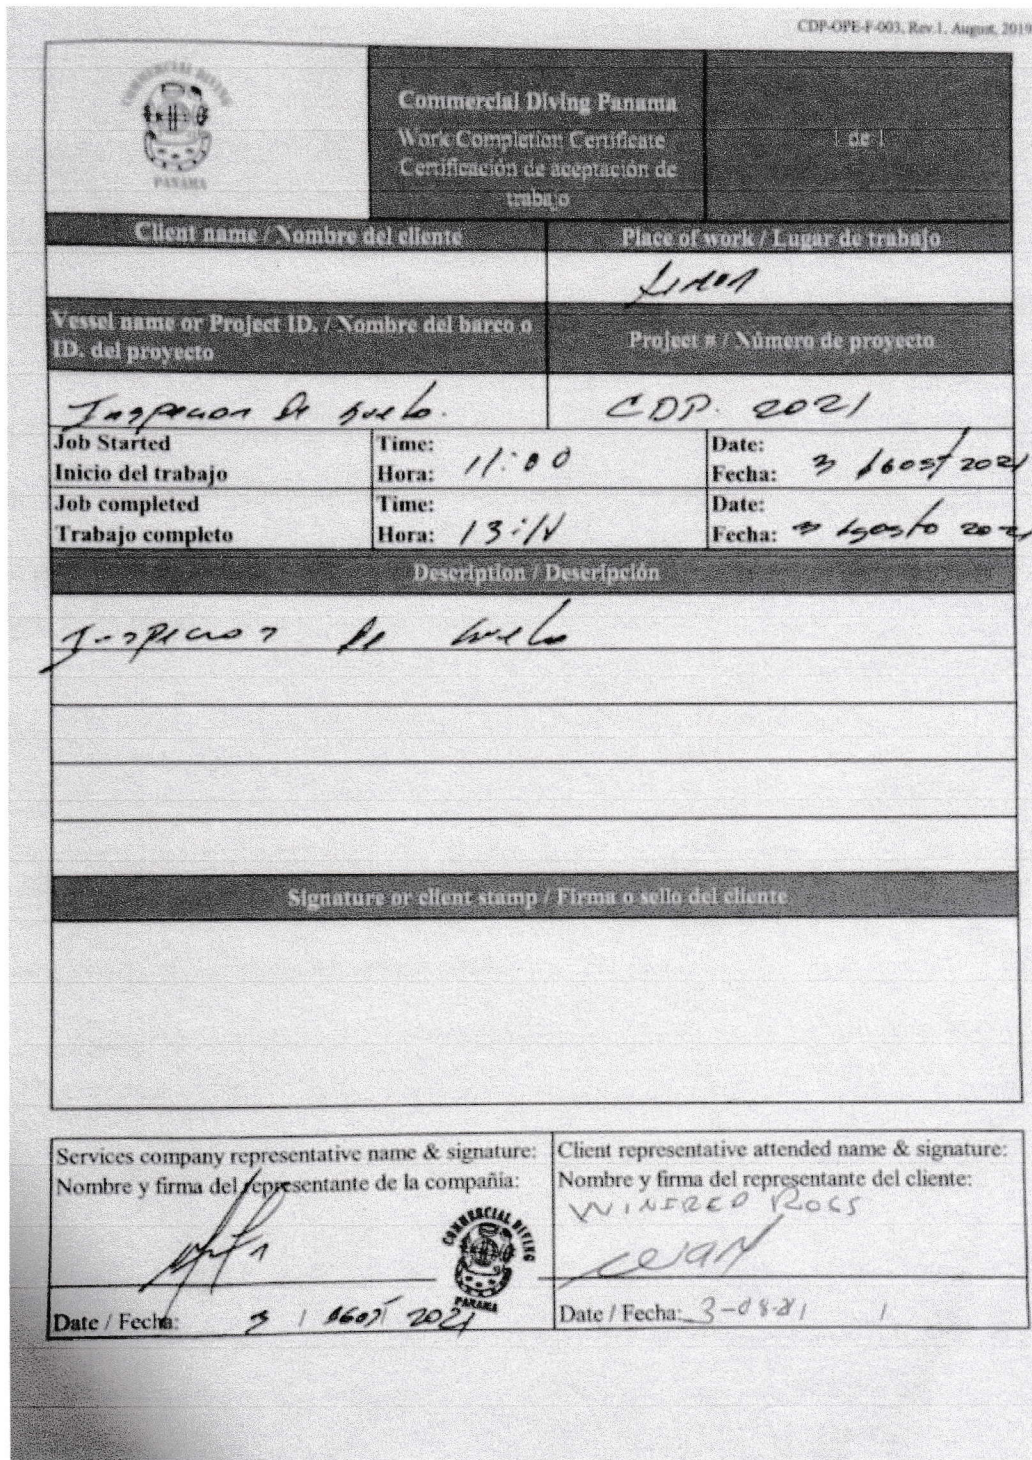 CDP-OPE-F-003, Rev.1, August, 2019
COMMERCIAL DIVING
PANAMA
Commercial Diving Panama
Work Completion Certificate
Certificación de aceptación de
trabajo
1 de 1
Client name / Nombre del cliente
Place of work / Lugar de trabajo
Vessel name or Project ID. / Nombre del barco o
ID. del proyecto
Project # / Número de proyecto
Inspecion De suelo.
CDP. 2021
Job Started
Inicio del trabajo
Time:
Hora: 11:00
Date:
Fecha: 3 Agost 2021
Job completed
Trabajo completo
Time:
Hora:
Date:
Fecha: 3 Agosto 2021
Description / Descripción
Inspecion De suelo
Signature or client stamp / Firma o sello del cliente
Services company representative name & signature:
Nombre y firma del representante de la compañia:
COMMERCIAL DIVING
PANAMA
Date / Fecha: 3 / Agost 2021
Client representative attended name & signature:
Nombre y firma del representante del cliente:
WINFRED ROSS
Date / Fecha: 3-08-21 /